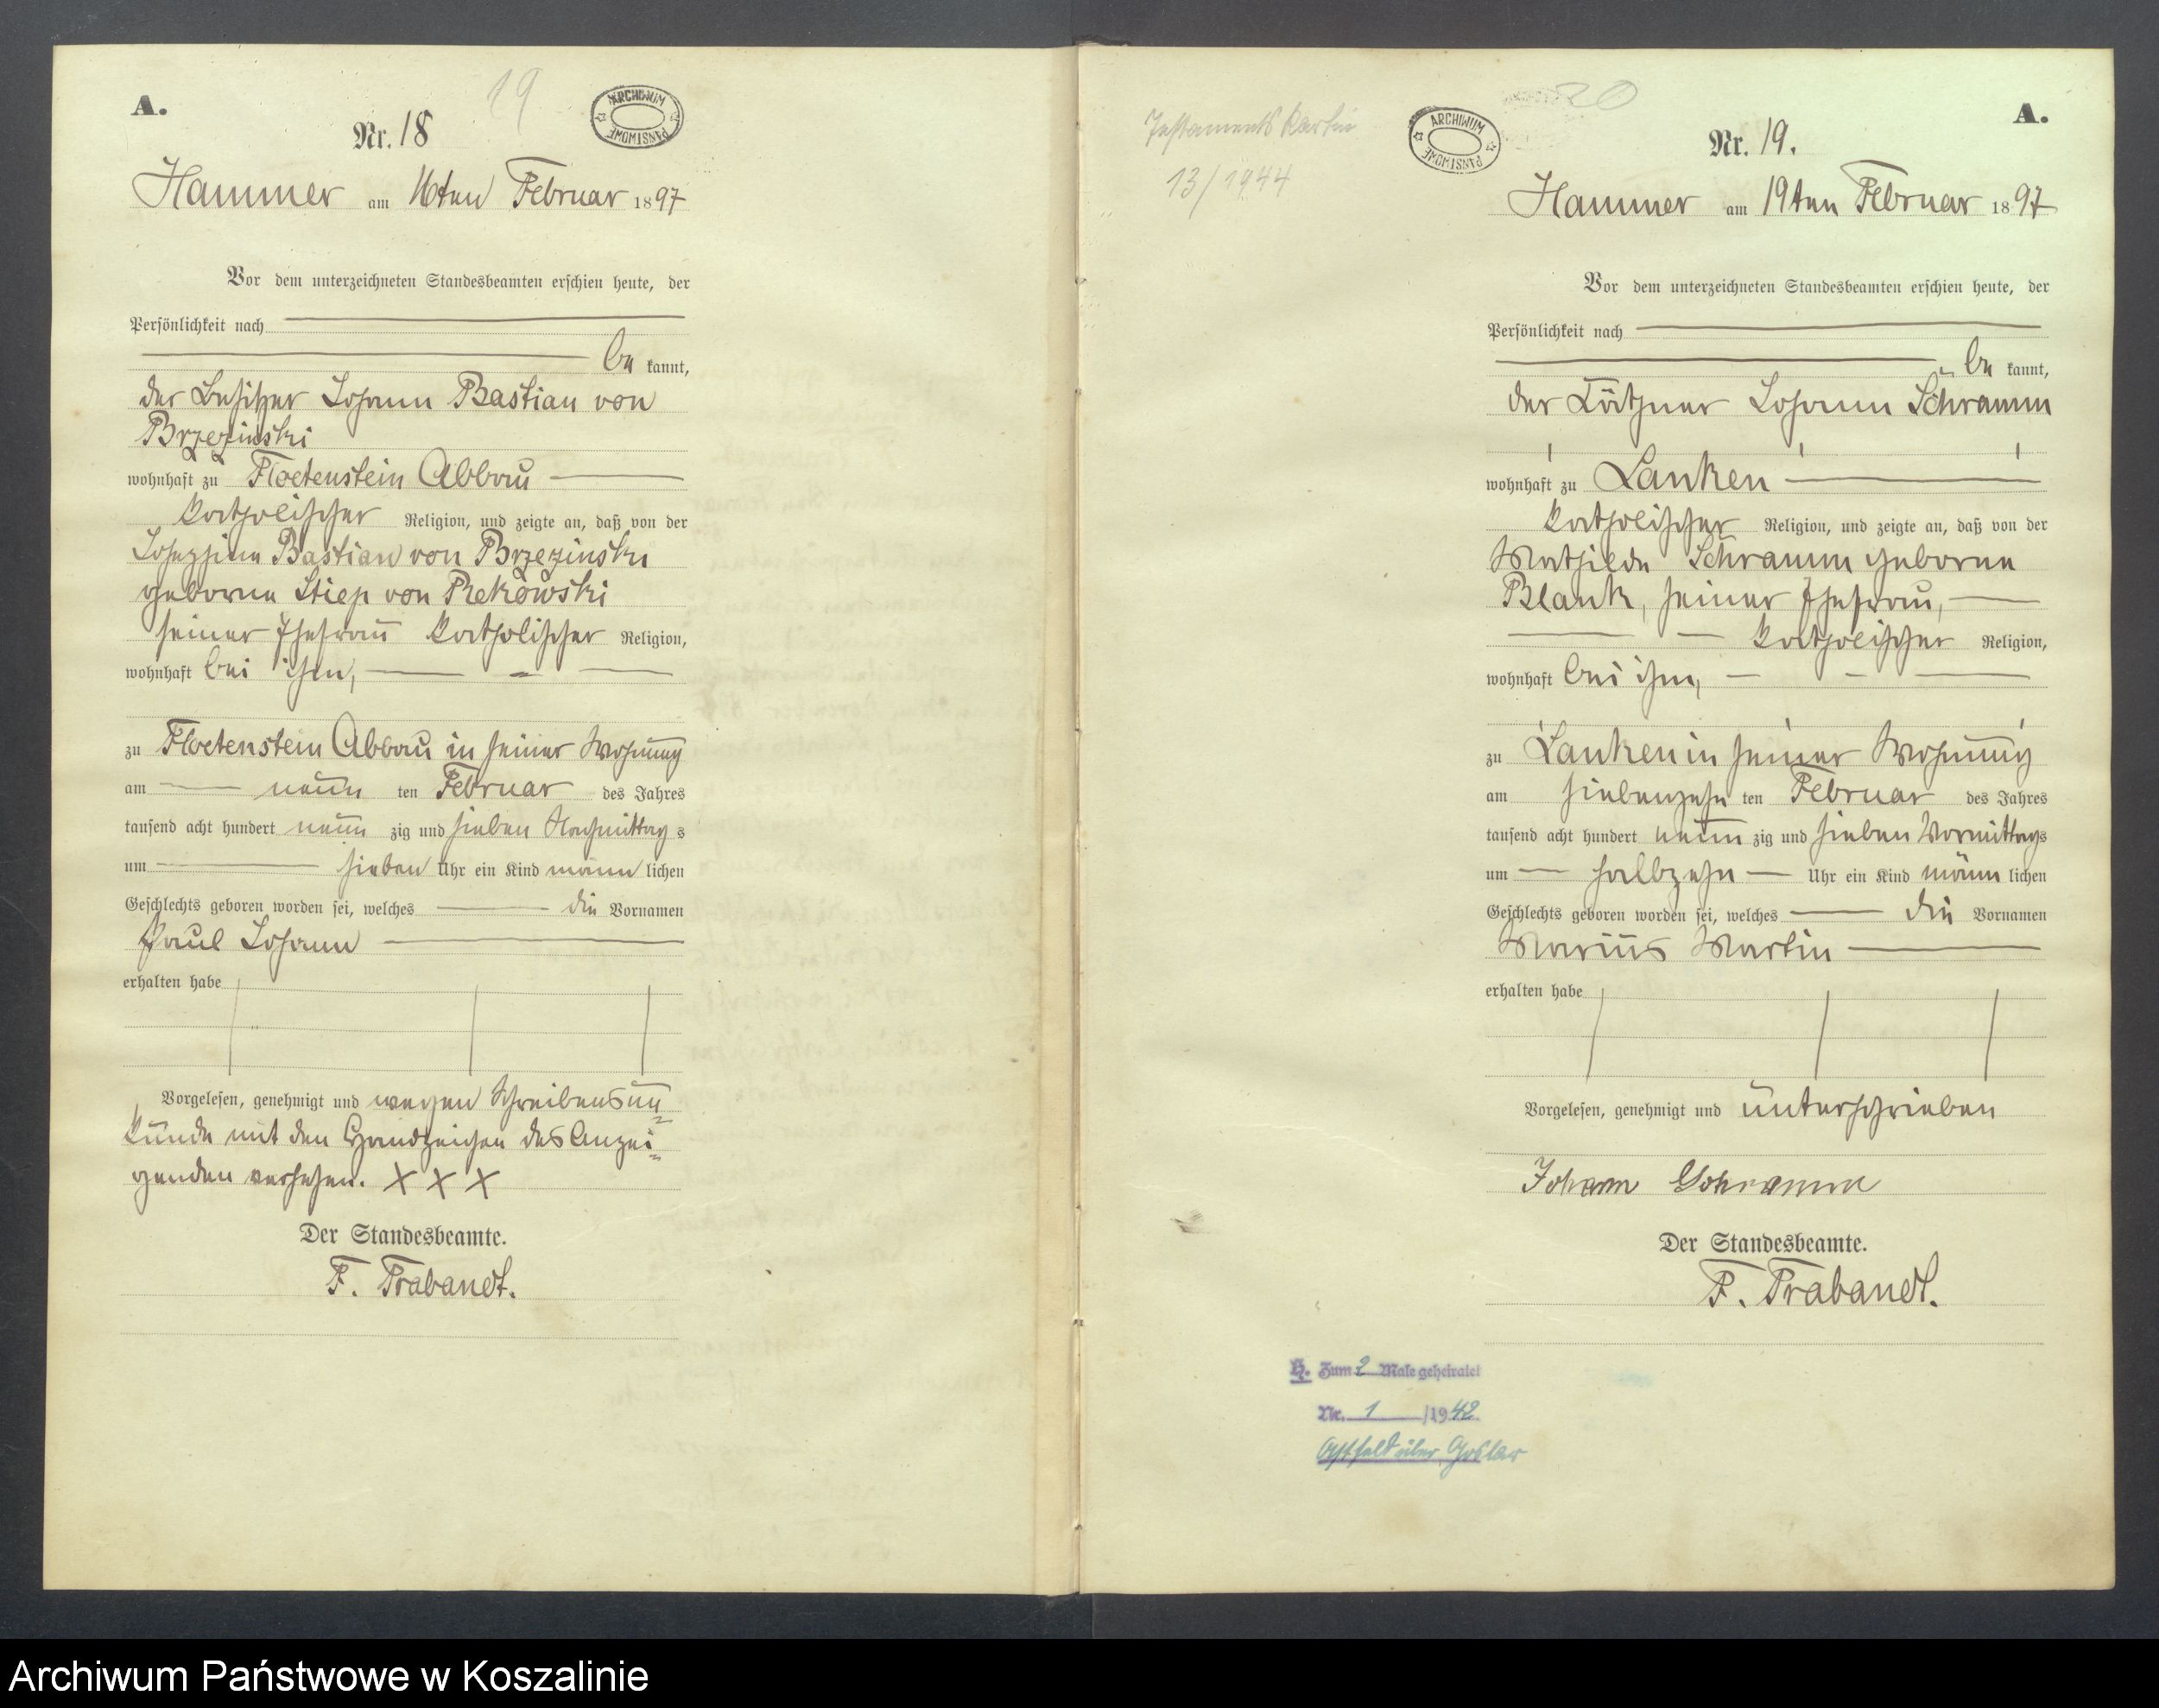 A.
19
ARCHIWUM PAŃSTWOWE
Nr. 18
Hammer am 16ten Februar 1897
Vor dem unterzeichneten Standesbeamten erschien heute, der
Persönlichkeit nach
be kannt,
der Besitzer Johann Bastian von
Brzezinski
wohnhaft zu Floetenstein Abbau
katholischer Religion, und zeigte an, daß von der
Josephine Bastian von Brzezinski
geborne Stiep von Rekowski
seiner Ehefrau katholischer Religion,
wohnhaft bei ihm,
zu Floetenstein Abbau in seiner Wohnung
am neun ten Februar des Jahres
tausend acht hundert neun zig und sieben Nachmittag s
um sieben Uhr ein Kind männ lichen
Geschlechts geboren worden sei, welches die Vornamen
Paul Johann
erhalten habe
Vorgelesen, genehmigt und wegen Schreibensun=
kunde mit den Handzeichen des Anzei=
genden versehen. X X X
Der Standesbeamte.
F. Trabandt.
Testaments Kartei
13/1944
ARCHIWUM PAŃSTWOWE
20
A.
Nr. 19.
Hammer am 19ten Februar 1897
Vor dem unterzeichneten Standesbeamten erschien heute, der
Persönlichkeit nach
be kannt,
der Käthner Johann Schramm
wohnhaft zu Lanken
katholischer Religion, und zeigte an, daß von der
Mathilde Schramm geborne
Blank, seiner Ehefrau,
katholischer Religion,
wohnhaft bei ihm,
zu Lanken in seiner Wohnung
am siebenzehn ten Februar des Jahres
tausend acht hundert neun zig und sieben Vormittags
um halbzehn Uhr ein Kind männ lichen
Geschlechts geboren worden sei, welches die Vornamen
Marius Martin
erhalten habe
Vorgelesen, genehmigt und unterschrieben
Johann Schramm
Der Standesbeamte.
F. Trabandt.
H. Zum 2 Male geheiratet
Nr. 1 /1942
über Goslar
Archiwum Państwowe w Koszalinie